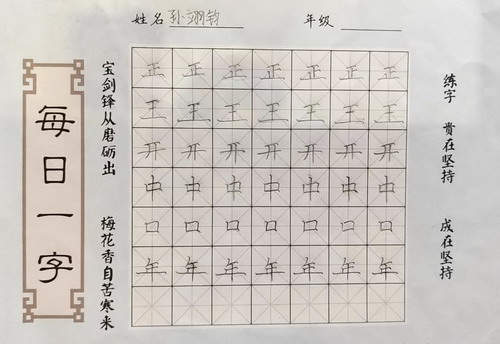 姓名 孙翊钧 年级
每日一字
宝剑锋从磨砺出
梅花香自苦寒来
正正正正正正正
王王王王王王王
开开开开开开开
中中中中中中中
口口口口口口口
年年年年年年年
练字 贵在坚持
成在坚持